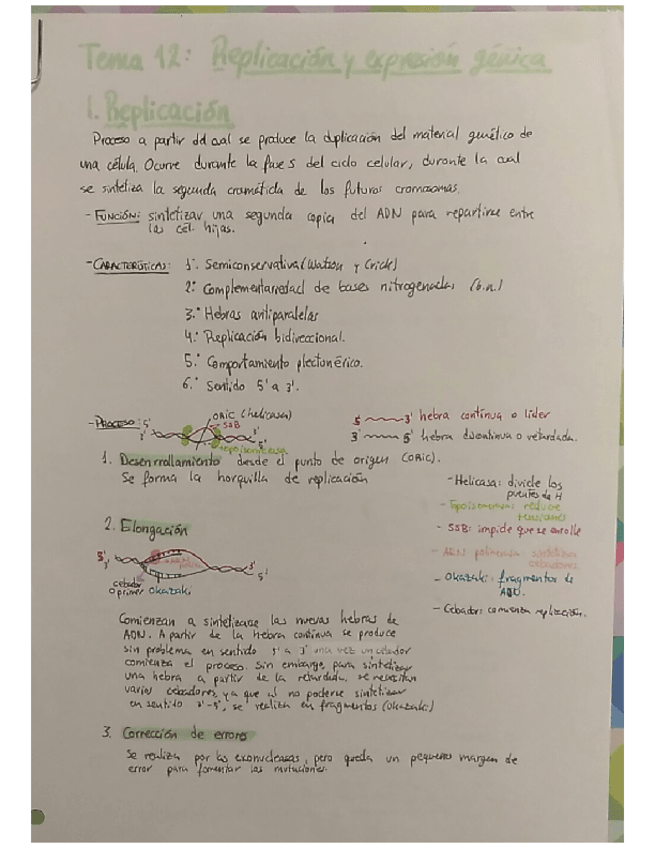 Tema 12: Replicación y expresión génica
1. Replicación
Proceso a partir del cual se produce la duplicación del material genético de
una célula. Ocurre durante la fase S del ciclo celular, durante la cual
se sintetiza la segunda cromátida de los futuros cromosomas.
- FUNCIÓN: sintetizar una segunda copia del ADN para repartirse entre
las cél. hijas.
- CARACTERÍSTICAS: 1.° Semiconservativa (Watson y Crick)
2.° Complementariedad de bases nitrogenadas (b.n.)
3.° Hebras antiparalelas
4.° Replicación bidireccional.
5.° Comportamiento plectonérico.
6.° Sentido 5' a 3'.
- PROCESO: 5'
3'
ORIC (helicasa)
SSB
3'
5'
topoisomerasa
5' 3' hebra continua o líder
3' 5' hebra discontinua o retardada.
1. Desenrrollamiento desde el punto de origen (ORIC).
Se forma la horquilla de replicación
- Helicasa: divide los
puentes de H
- Topoisomerasa: reduce
tensiones
- SSB: impide que se enrolle
- ARN polimerasa sintetiza
cebadores
- Okazaki: fragmentos de
ADN.
- Cebador: comienza replicación.
2. Elongación
5'
3'
3'
5'
cebador
o primer
okazaki
Comienzan a sintetizarse las nuevas hebras de
ADN. A partir de la hebra continua se produce
sin problema en sentido 5' a 3' una vez un cebador
comienza el proceso. Sin embargo, para sintetizar
una hebra a partir de la retardada, se necesitan
varios cebadores, ya que al no poderse sintetizar
en sentido 3'-5', se realiza en fragmentos (Okazaki)
3. Corrección de errores
Se realiza por las exonucleasas, pero queda un pequeño margen de
error para fomentar las mutaciones.